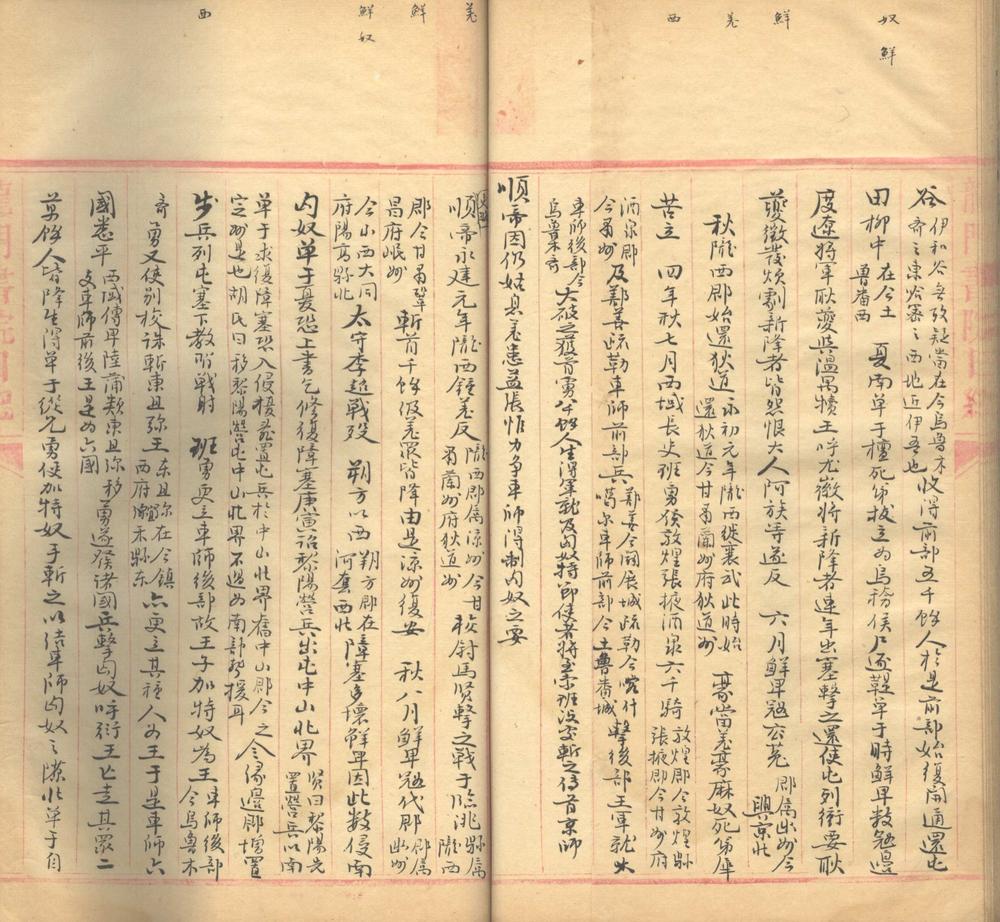 奴 鮮
鮮
羌
西
谷 伊和谷無攷疑當在今烏魯木
齊之東哈密之西地近伊吾也
收得前部五千餘人於是前部始復開通還屯
田柳中 在今土
魯番西
夏南單于檀死弟拔立為烏稽侯尸逐鞮單于時鮮卑數寇邊
度遼將軍耿夔與溫禺犢王呼尤徽將新降者連年出塞擊之還使屯列衝要耿
夔徵發煩劇新降者皆怨恨大人阿族等遂反 六月鮮卑寇玄菟 郡屬幽州今
興京北
秋隴西郡始還狄道 永初元年隴西徙襄武此時始
還狄道今甘肅蘭州府狄道州
豪當羌豪麻奴死弟犀
苦立 四年秋七月西域長史班勇發敦煌張掖酒泉六千騎 敦煌郡今敦煌縣
張掖郡今甘州府
酒泉郡
今肅州
及鄯善疏勒車師前部兵 鄯善今闢展城疏勒今喀什
噶尔車師前部今土魯番城
擊後部王軍就 大
車師後部今
烏魯木齊
大破之獲首虜八千餘人生得軍就及匈奴持節使者將至索班沒處斬之傳首京師
順帝因仍姑息羌患益張惟力爭車師得制匈奴之要
羌
鮮
鮮 奴
西
順帝永建元年隴西鍾羌反 隴西郡屬涼州今甘
肅蘭州府狄道州
校尉馬賢擊之戰于臨洮 縣屬
隴西
郡今甘肅鞏
昌府岷州
斬首千餘級羌眾皆降由是涼州復安 秋八月鮮卑寇代郡 郡屬
幽州
今山西大同
府陽高縣北
太守李超戰歿 朔方以西 朔方郡在
河套西北
障塞多壞鮮卑因此數侵南
匈奴單于憂恐上書乞修復障塞庚寅詔黎陽營兵出屯中山北界 賢曰黎陽先
置營兵以南
單于求復障塞恐入侵擾 置屯兵於中山北界舊中山郡今之
定州是也胡氏曰移黎陽營屯中山北界不過為南部聲援耳
令緣邊郡增置
步兵列屯塞下教習戰射 班勇更立車師後部故王子加特奴為王 車師後部
今烏魯木
齊
勇又使別校誅斬東且彌王 東且彌在今鎮
西府宜禾縣東
亦更立其種人為王于是車師六
國悉平 西域傳卑陸蒲類東且弥移
支車師前後王是為六國
勇遂發諸國兵擊匈奴呼衍王亡走其眾二
萬餘人皆降生得單于從兄勇使加特奴手斬之以結車師匈奴之隙北單于自